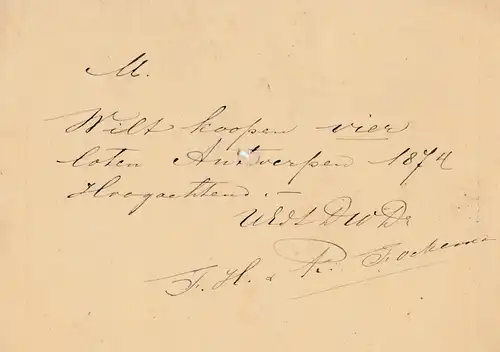 M.
Wilt koopen vier
loten Antwerpen 1874
Hoogachtend. –
UEdS DWDr
F. H. & K. Fockema